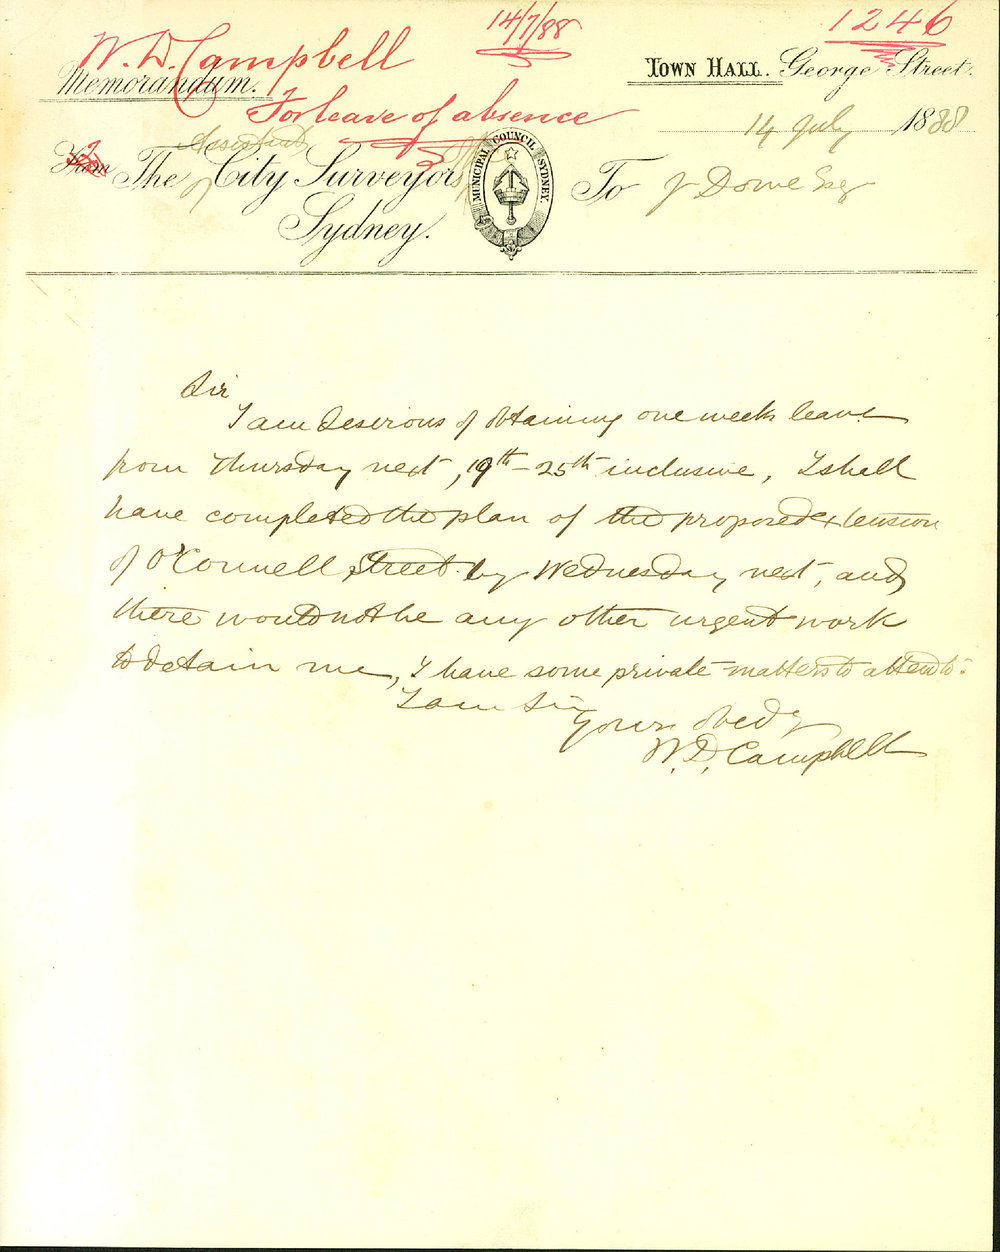 14/7/88
1246
W. D. Campbell
Memorandum.
TOWN HALL. George Street.
For leave of absence
14 July 1888
From The Assistant City Surveyor's
Sydney.
MUNICIPAL COUNCIL SYDNEY.
To J Dowe Esq
Sir
I am desirous of obtaining one weeks leave
from Thursday next, 19th - 25th inclusive, I shall
have completed the plan of the proposed extension
of O'Connell Street by Wednesday next, and
there would not be any other urgent work
to detain me, I have some private matters to attend to.
I am Sir
Yours obedy
W. D. Campbell